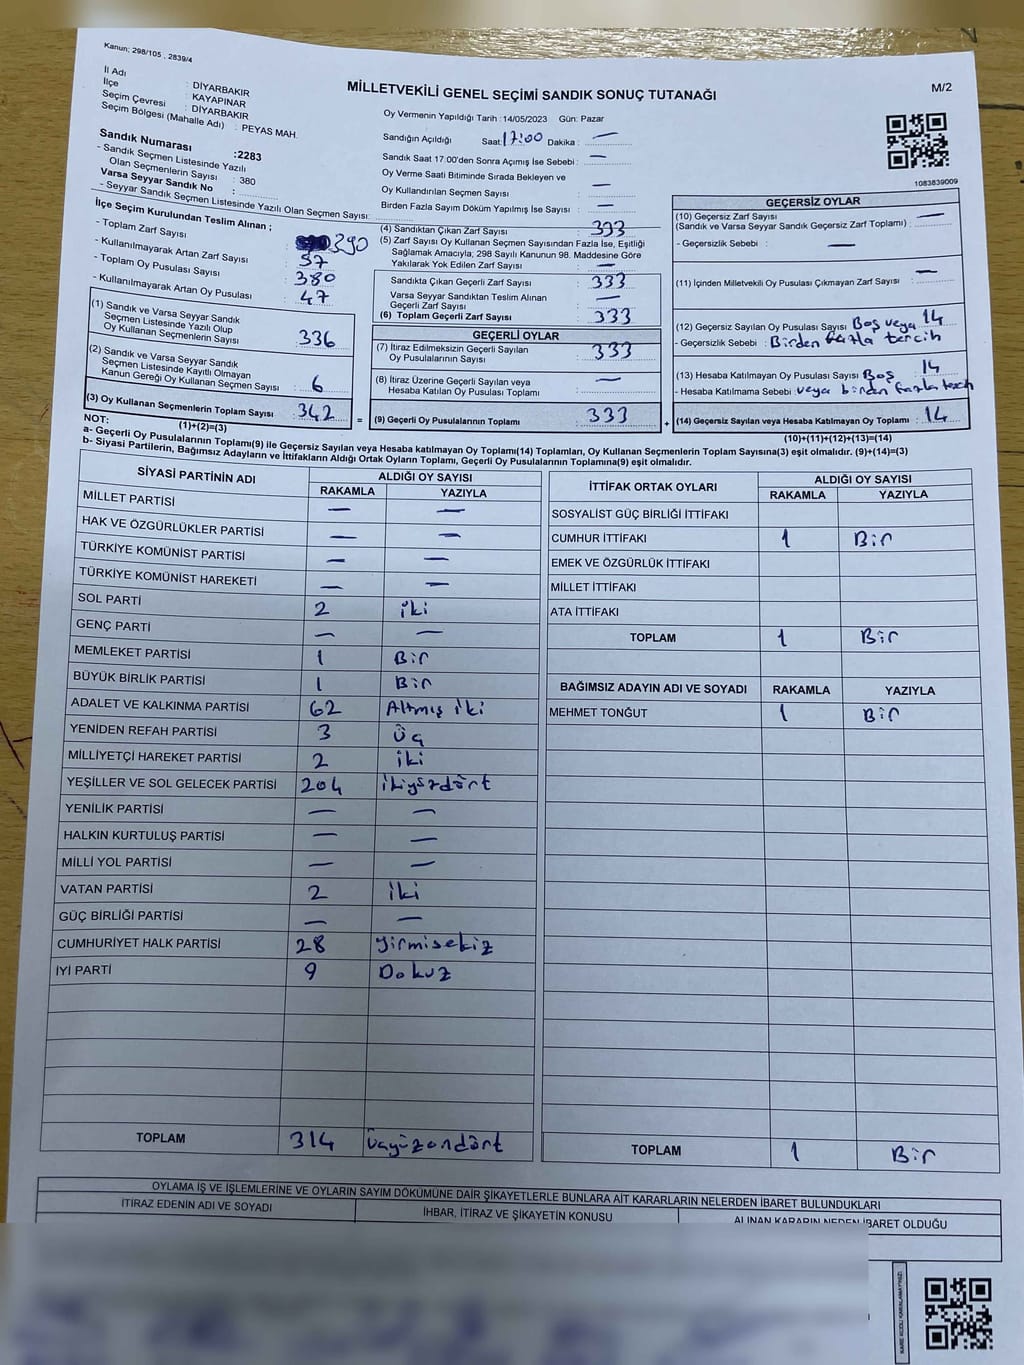 Kanun; 298/105 , 2839/4
İl Adı : DİYARBAKIR
İlçe : KAYAPINAR
Seçim Çevresi : DİYARBAKIR
Seçim Bölgesi (Mahalle Adı) : PEYAS MAH.
MİLLETVEKİLİ GENEL SEÇİMİ SANDIK SONUÇ TUTANAĞI
M/2
Oy Vermenin Yapıldığı Tarih : 14/05/2023 Gün: Pazar
Sandığın Açıldığı Saat: 17:00 Dakika : —
Sandık Saat 17:00'den Sonra Açımış İse Sebebi : —
Oy Verme Saati Bitiminde Sırada Bekleyen ve
Oy Kullandırılan Seçmen Sayısı : —
Birden Fazla Sayım Döküm Yapılmış İse Sayısı : —
1083839009
Sandık Numarası :2283
- Sandık Seçmen Listesinde Yazılı
Olan Seçmenlerin Sayısı : 380
Varsa Seyyar Sandık No :
- Seyyar Sandık Seçmen Listesinde Yazılı Olan Seçmen Sayısı:
İlçe Seçim Kurulundan Teslim Alınan ;
- Toplam Zarf Sayısı : 390
- Kullanılmayarak Artan Zarf Sayısı : 57
- Toplam Oy Pusulası Sayısı : 380
- Kullanılmayarak Artan Oy Pusulası : 47
(1) Sandık ve Varsa Seyyar Sandık
Seçmen Listesinde Yazılı Olup
Oy Kullanan Seçmenlerin Sayısı : 336
(2) Sandık ve Varsa Seyyar Sandık
Seçmen Listesinde Kayıtlı Olmayan
Kanun Gereği Oy Kullanan Seçmen Sayısı : 6
(3) Oy Kullanan Seçmenlerin Toplam Sayısı : 342
(1)+(2)=(3)
(4) Sandıktan Çıkan Zarf Sayısı : 333
(5) Zarf Sayısı Oy Kullanan Seçmen Sayısından Fazla İse, Eşitliği
Sağlamak Amacıyla; 298 Sayılı Kanunun 98. Maddesine Göre
Yakılarak Yok Edilen Zarf Sayısı : —
Sandıkta Çıkan Geçerli Zarf Sayısı : 333
Varsa Seyyar Sandıktan Teslim Alınan
Geçerli Zarf Sayısı : —
(6) Toplam Geçerli Zarf Sayısı : 333
GEÇERLİ OYLAR
(7) İtiraz Edilmeksizin Geçerli Sayılan
Oy Pusulalarının Sayısı : 333
(8) İtiraz Üzerine Geçerli Sayılan veya
Hesaba Katılan Oy Pusulası Toplamı : —
= (9) Geçerli Oy Pusulalarının Toplamı : 333
GEÇERSİZ OYLAR
(10) Geçersiz Zarf Sayısı
(Sandık ve Varsa Seyyar Sandık Geçersiz Zarf Toplamı) : —
- Geçersizlik Sebebi : —
(11) İçinden Milletvekili Oy Pusulası Çıkmayan Zarf Sayısı : —
(12) Geçersiz Sayılan Oy Pusulası Sayısı Boş veya 14
- Geçersizlik Sebebi : Birden fazla tercih
(13) Hesaba Katılmayan Oy Pusulası Sayısı Boş 14
- Hesaba Katılmama Sebebi : veya birden fazla tercih
+ (14) Geçersiz Sayılan veya Hesaba Katılmayan Oy Toplamı : 14
(10)+(11)+(12)+(13)=(14)
NOT:
a- Geçerli Oy Pusulalarının Toplamı(9) ile Geçersiz Sayılan veya Hesaba katılmayan Oy Toplamı(14) Toplamları, Oy Kullanan Seçmenlerin Toplam Sayısına(3) eşit olmalıdır. (9)+(14)=(3)
b- Siyasi Partilerin, Bağımsız Adayların ve İttifakların Aldığı Ortak Oyların Toplamı, Geçerli Oy Pusulalarının Toplamına(9) eşit olmalıdır.
SİYASİ PARTİNİN ADI ALDIĞI OY SAYISI
RAKAMLA YAZIYLA
MİLLET PARTİSİ — —
HAK VE ÖZGÜRLÜKLER PARTİSİ — —
TÜRKİYE KOMÜNİST PARTİSİ — —
TÜRKİYE KOMÜNİST HAREKETİ — —
SOL PARTİ 2 iki
GENÇ PARTİ — —
MEMLEKET PARTİSİ 1 Bir
BÜYÜK BİRLİK PARTİSİ 1 Bir
ADALET VE KALKINMA PARTİSİ 62 Altmış iki
YENİDEN REFAH PARTİSİ 3 üç
MİLLİYETÇİ HAREKET PARTİSİ 2 iki
YEŞİLLER VE SOL GELECEK PARTİSİ 204 ikiyüzdört
YENİLİK PARTİSİ — —
HALKIN KURTULUŞ PARTİSİ — —
MİLLİ YOL PARTİSİ — —
VATAN PARTİSİ 2 iki
GÜÇ BİRLİĞİ PARTİSİ — —
CUMHURİYET HALK PARTİSİ 28 yirmisekiz
İYİ PARTİ 9 Dokuz
TOPLAM 314 üçyüzondört
İTTİFAK ORTAK OYLARI ALDIĞI OY SAYISI
RAKAMLA YAZIYLA
SOSYALİST GÜÇ BİRLİĞİ İTTİFAKI
CUMHUR İTTİFAKI 1 Bir
EMEK VE ÖZGÜRLÜK İTTİFAKI
MİLLET İTTİFAKI
ATA İTTİFAKI
TOPLAM 1 Bir
BAĞIMSIZ ADAYIN ADI VE SOYADI RAKAMLA YAZIYLA
MEHMET TONĞUT 1 Bir
TOPLAM 1 Bir
OYLAMA İŞ VE İŞLEMLERİNE VE OYLARIN SAYIM DÖKÜMÜNE DAİR ŞİKAYETLERLE BUNLARA AİT KARARLARIN NELERDEN İBARET BULUNDUKLARI
İTİRAZ EDENİN ADI VE SOYADI
İHBAR, İTİRAZ VE ŞİKAYETİN KONUSU
ALINAN KARARIN NEDEN İBARET OLDUĞU
KARE KODU KARALAMAYINIZ!